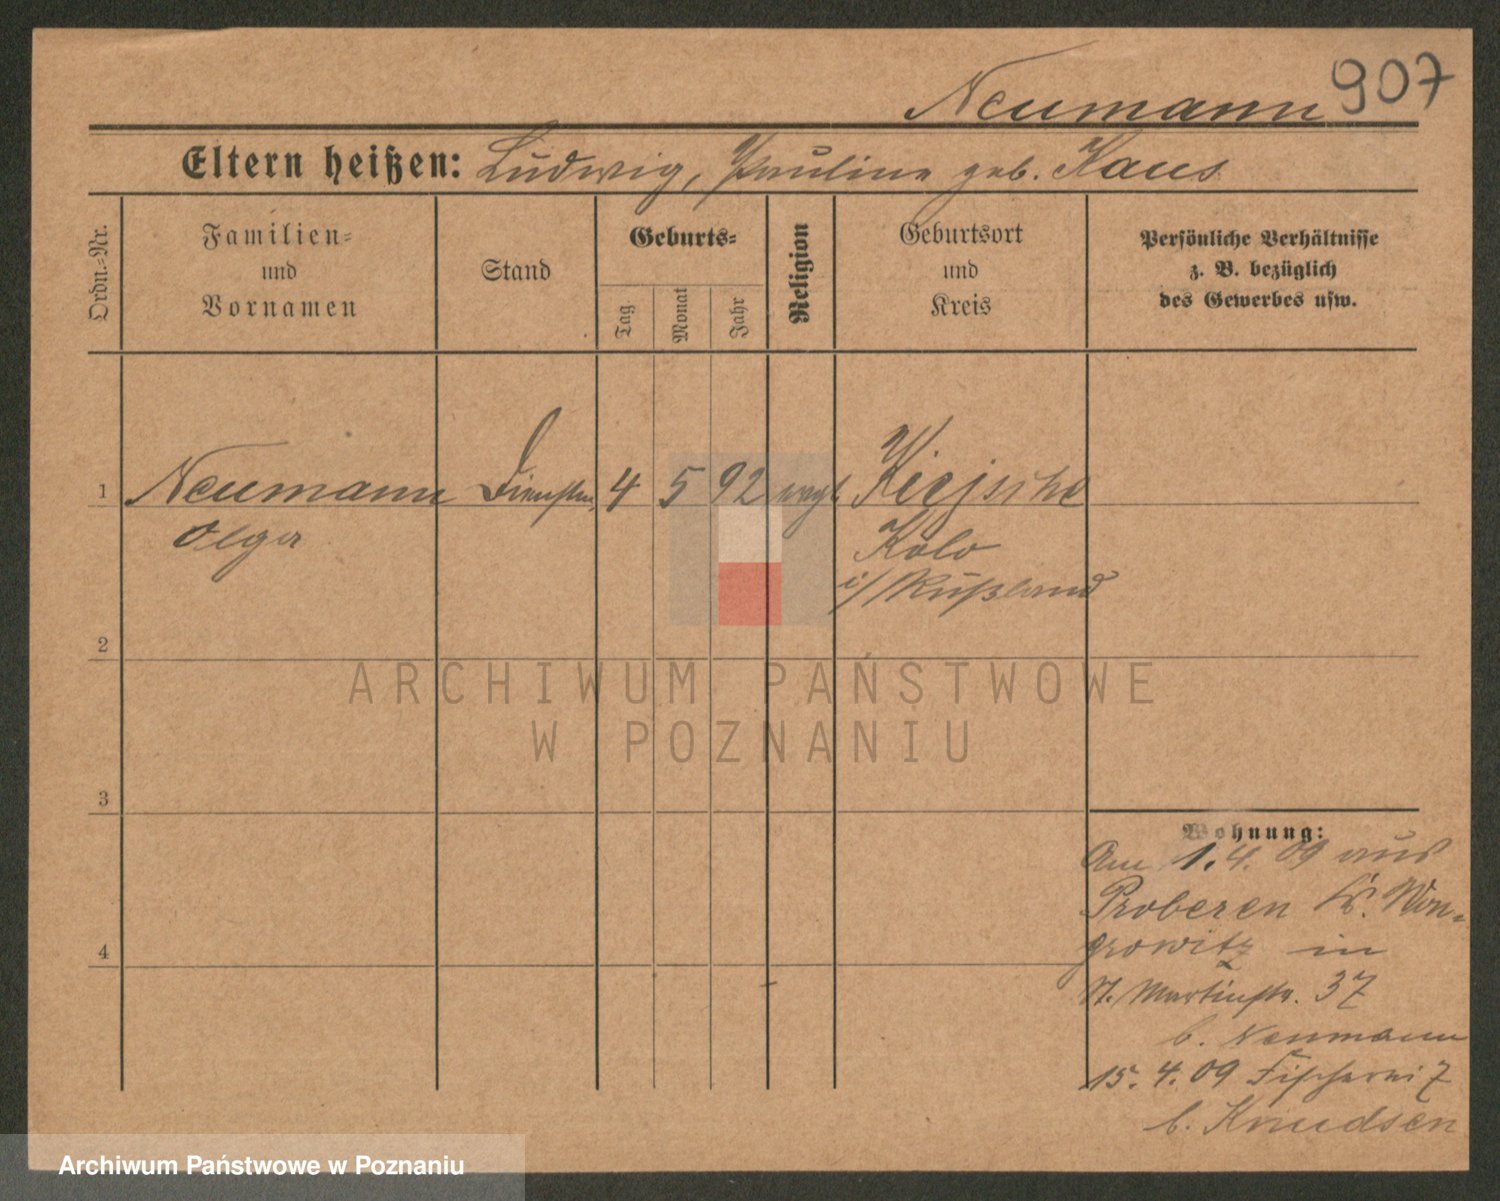 Neumann 907
Eltern heißen: Ludwig, Pauline geb. Kaus
Ordn.-Nr.
Familien-
und
Vornamen
Stand
Geburts-
Tag
Monat
Jahr
Religion
Geburtsort
und
Kreis
Persönliche Verhältnisse
z. B. bezüglich
des Gewerbes usw.
1 Neumann 4 5 92 evgl
Olga
Kolo
i/ Rußland
2
3
4
Wohnung:
Am 1. 4. 09 aus
Proberen Kr. Won-
growitz in
St. Martinstr. 37
b. Neumann
15. 4. 09 Fischerei 7
b. Knudsen
ARCHIWUM PAŃSTWOWE
W POZNANIU
Archiwum Państwowe w Poznaniu